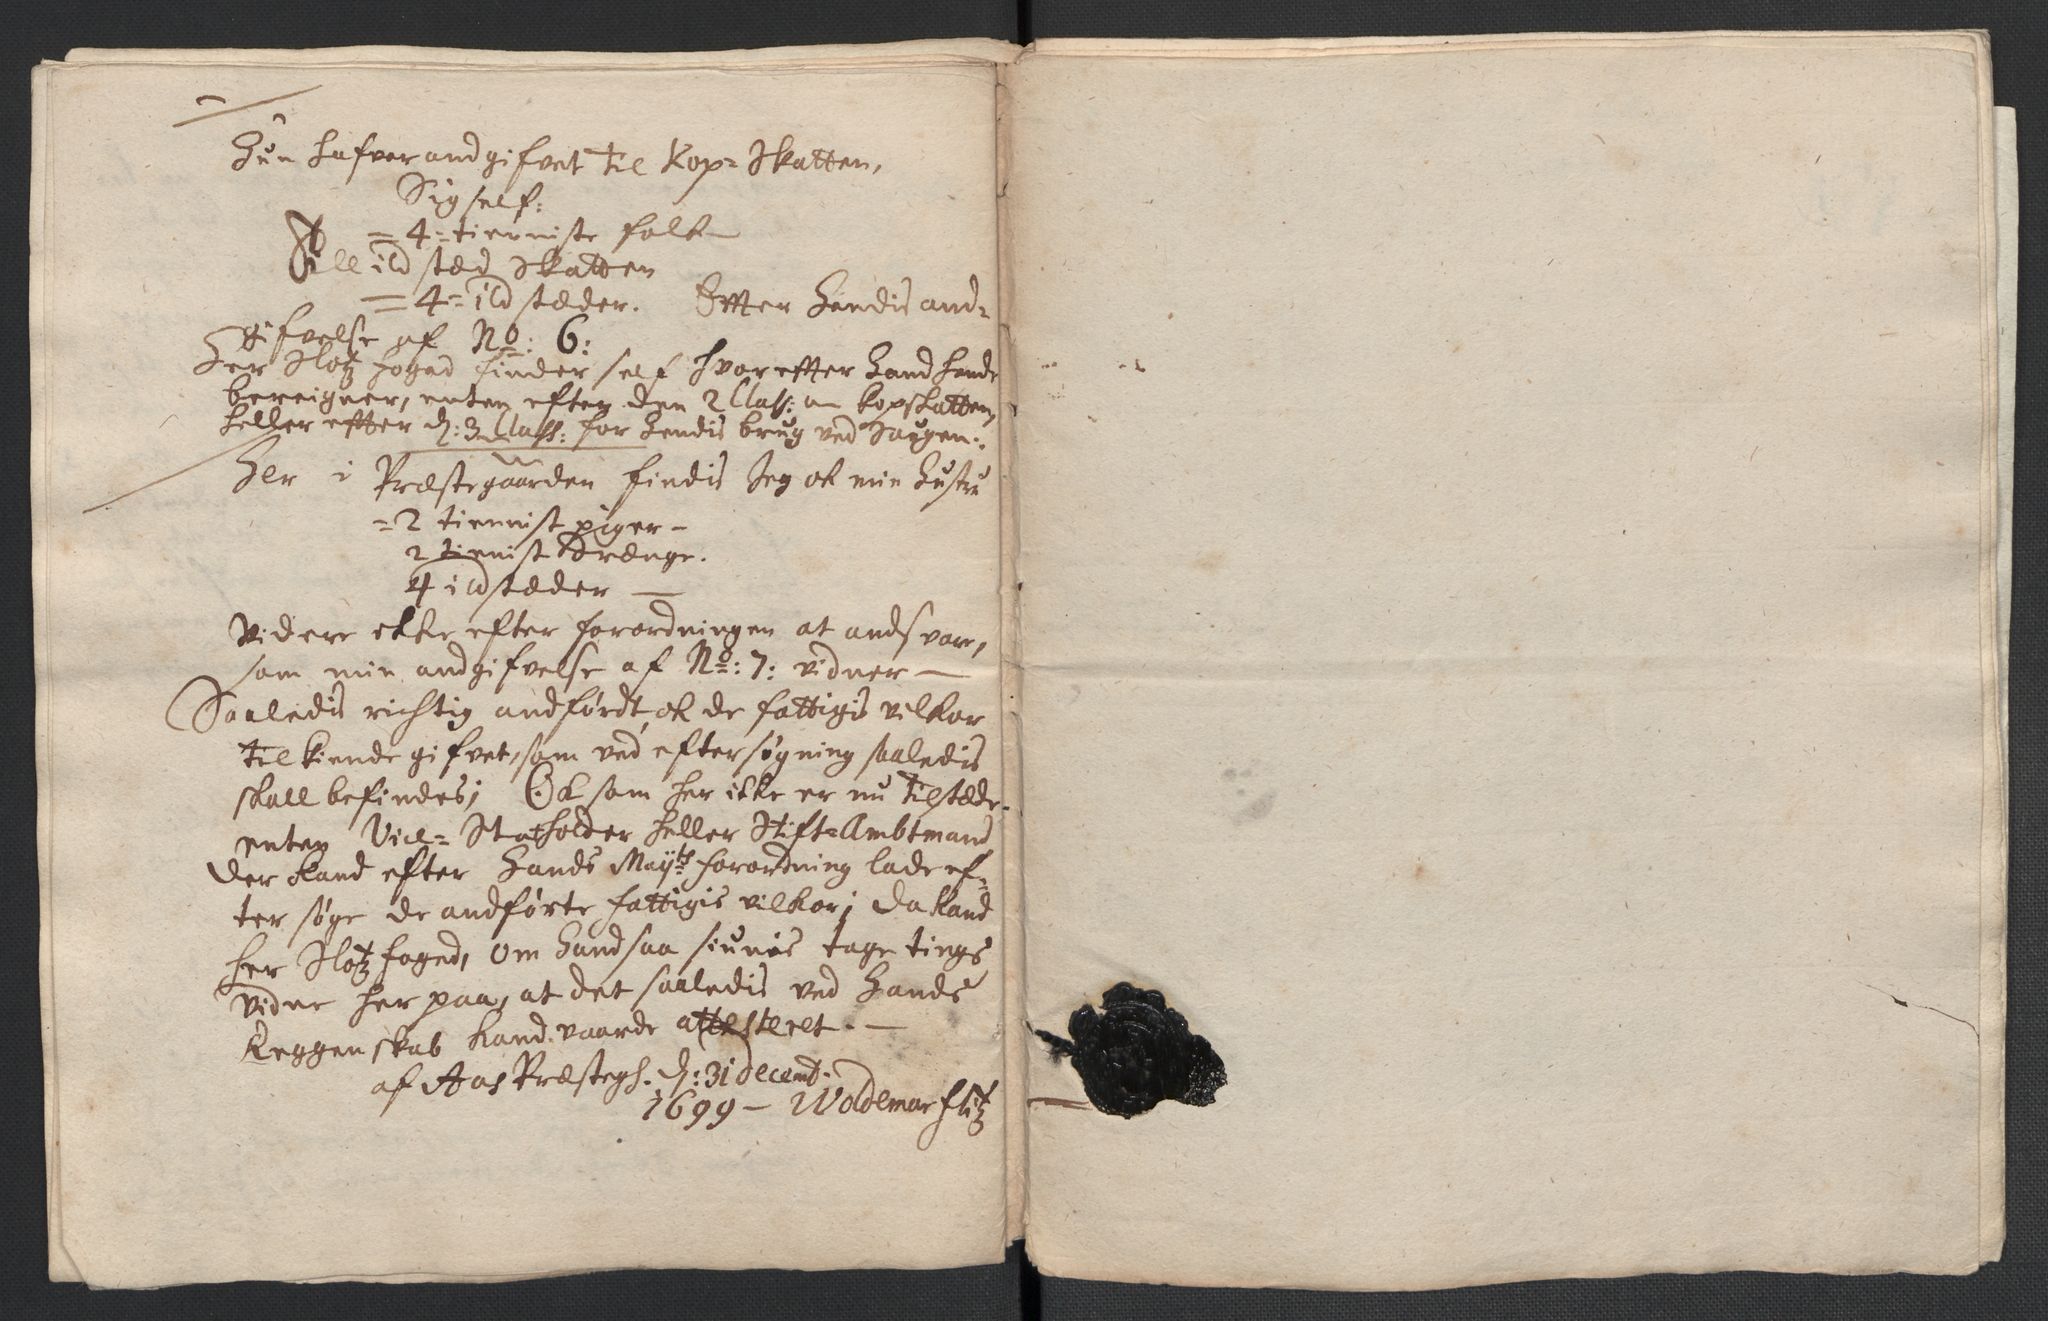 Hun hafver andgifvet til Kop= Skatten,
Sig self:
= 4 = tierniste folk
Till ild stæd Skatten
= 4 = ild stæder. Efter Hendis and=
gifvelse af No: 6:
Her Slotz foged finder self hvor effter Hand hende
bereigner, enten efter den 2 Class: a kopskatten,
heller effter d: 3 Class: for Hendis brug ved Saugen.
Her i Præstegaarden findis Jeg ok min Hustru
= 2 tiennist piger -
2 tienist drænge.
4 ildstæder
Videre ekke efter forordningen at andsvare,
som min andgifvelse af No: 7: vidner
Saaledis richtig andfördt, ok de fattigis vilkor
til kiende gifvet, som ved eftersøgning saaledis
skall befindes; Ok som her ikke er nu tilstæde
enten Vice= Statholder heller Stift= Ambtmand
der kand efter Hands Mayts forordning lade ef=
ter søge de andførte fattigis vilkor; da kand
her Slotz foged, om Hand saa siunis tage tings
vidne her paa, at det saaledis ved Hands
Reggenskab kand vaarde attesteret.
af Aas Præstegh. d: 31 decemb.
1699 - Woldemar flitz